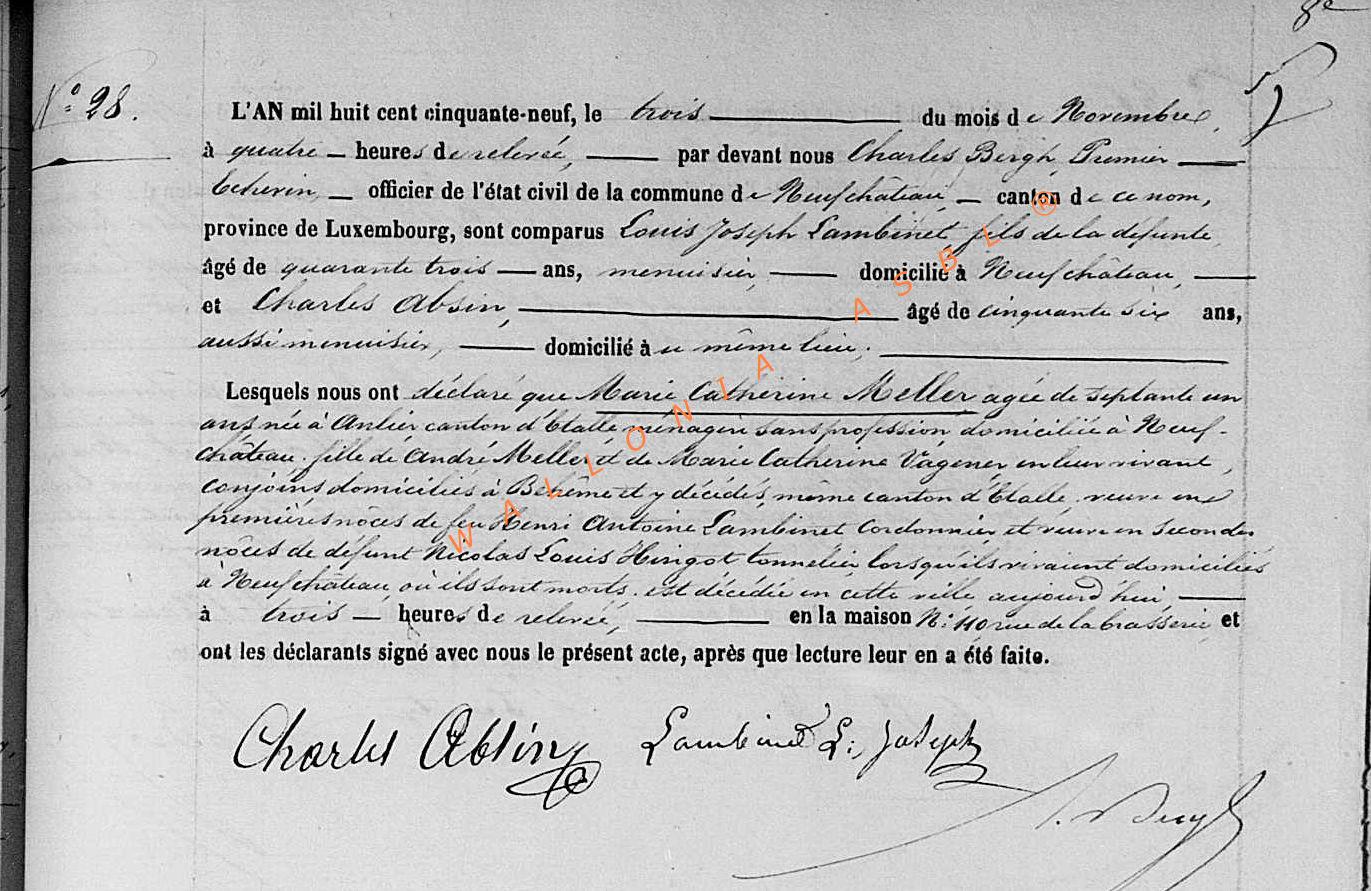 8e
N° 28.
L'AN mil huit cent cinquante-neuf, le trois du mois de Novembre,
à quatre heures de relevée, par devant nous Charles Bergh, Premier
Echevin, officier de l'état civil de la commune de Neufchâteau, canton de ce nom,
province de Luxembourg, sont comparus Louis Joseph Lambinet, fils de la défunte,
âgé de quarante trois ans, menuisier, domicilié à Neufchâteau,
et Charles Absin, âgé de cinquante six ans,
aussi menuisier, domicilié à même lieu;
Lesquels nous ont déclaré que Marie Catherine Meller agée de septante un
ans née à Anlier canton d'Etalle ménagère sans profession, domiciliée à Neuf-
château, fille de André Meller et de Marie Catherine Vagener en leur vivant,
conjoins domiciliés à Behême et y décédés, même canton d'Etalle, veuve en
premières nôces de feu Henri Antoine Lambinet Cordonnier et veuve en secondes
nôces de défunt Nicolas Louis Hingot tonnelier, lorsqu'ils vivaient domiciliés
à Neufchateau, où ils sont morts, est décédée en cette ville aujourd'hui
à trois heures de relevée, en la maison N° 40 rue de la brasserie et
ont les déclarants signé avec nous le présent acte, après que lecture leur en a été faite.
Charles Absin Lambinet L. Joseph
Bergh
WALLONIA ASBL ®